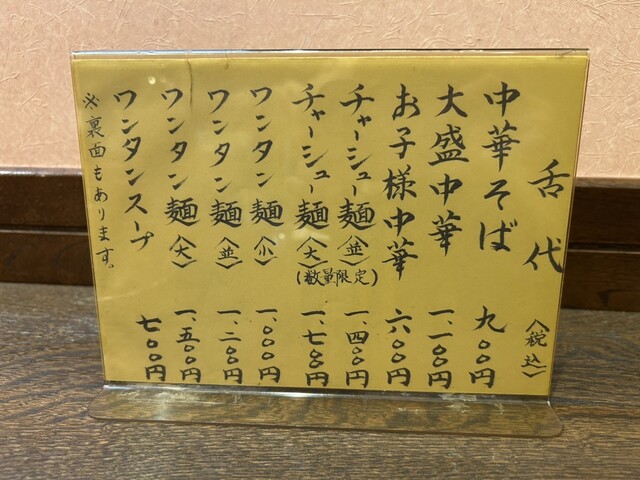 舌代 〈税込〉
中華そば 九〇〇円
大盛中華 一、一〇〇円
お子様中華 六〇〇円
チャーシュー麺〈並〉 一、四〇〇円
チャーシュー麺〈大〉 一、七〇〇円
(数量限定)
ワンタン麺〈小〉 一、〇〇〇円
ワンタン麺〈並〉 一、二〇〇円
ワンタン麺〈大〉 一、五〇〇円
ワンタンスープ 七〇〇円
※裏面もあります。